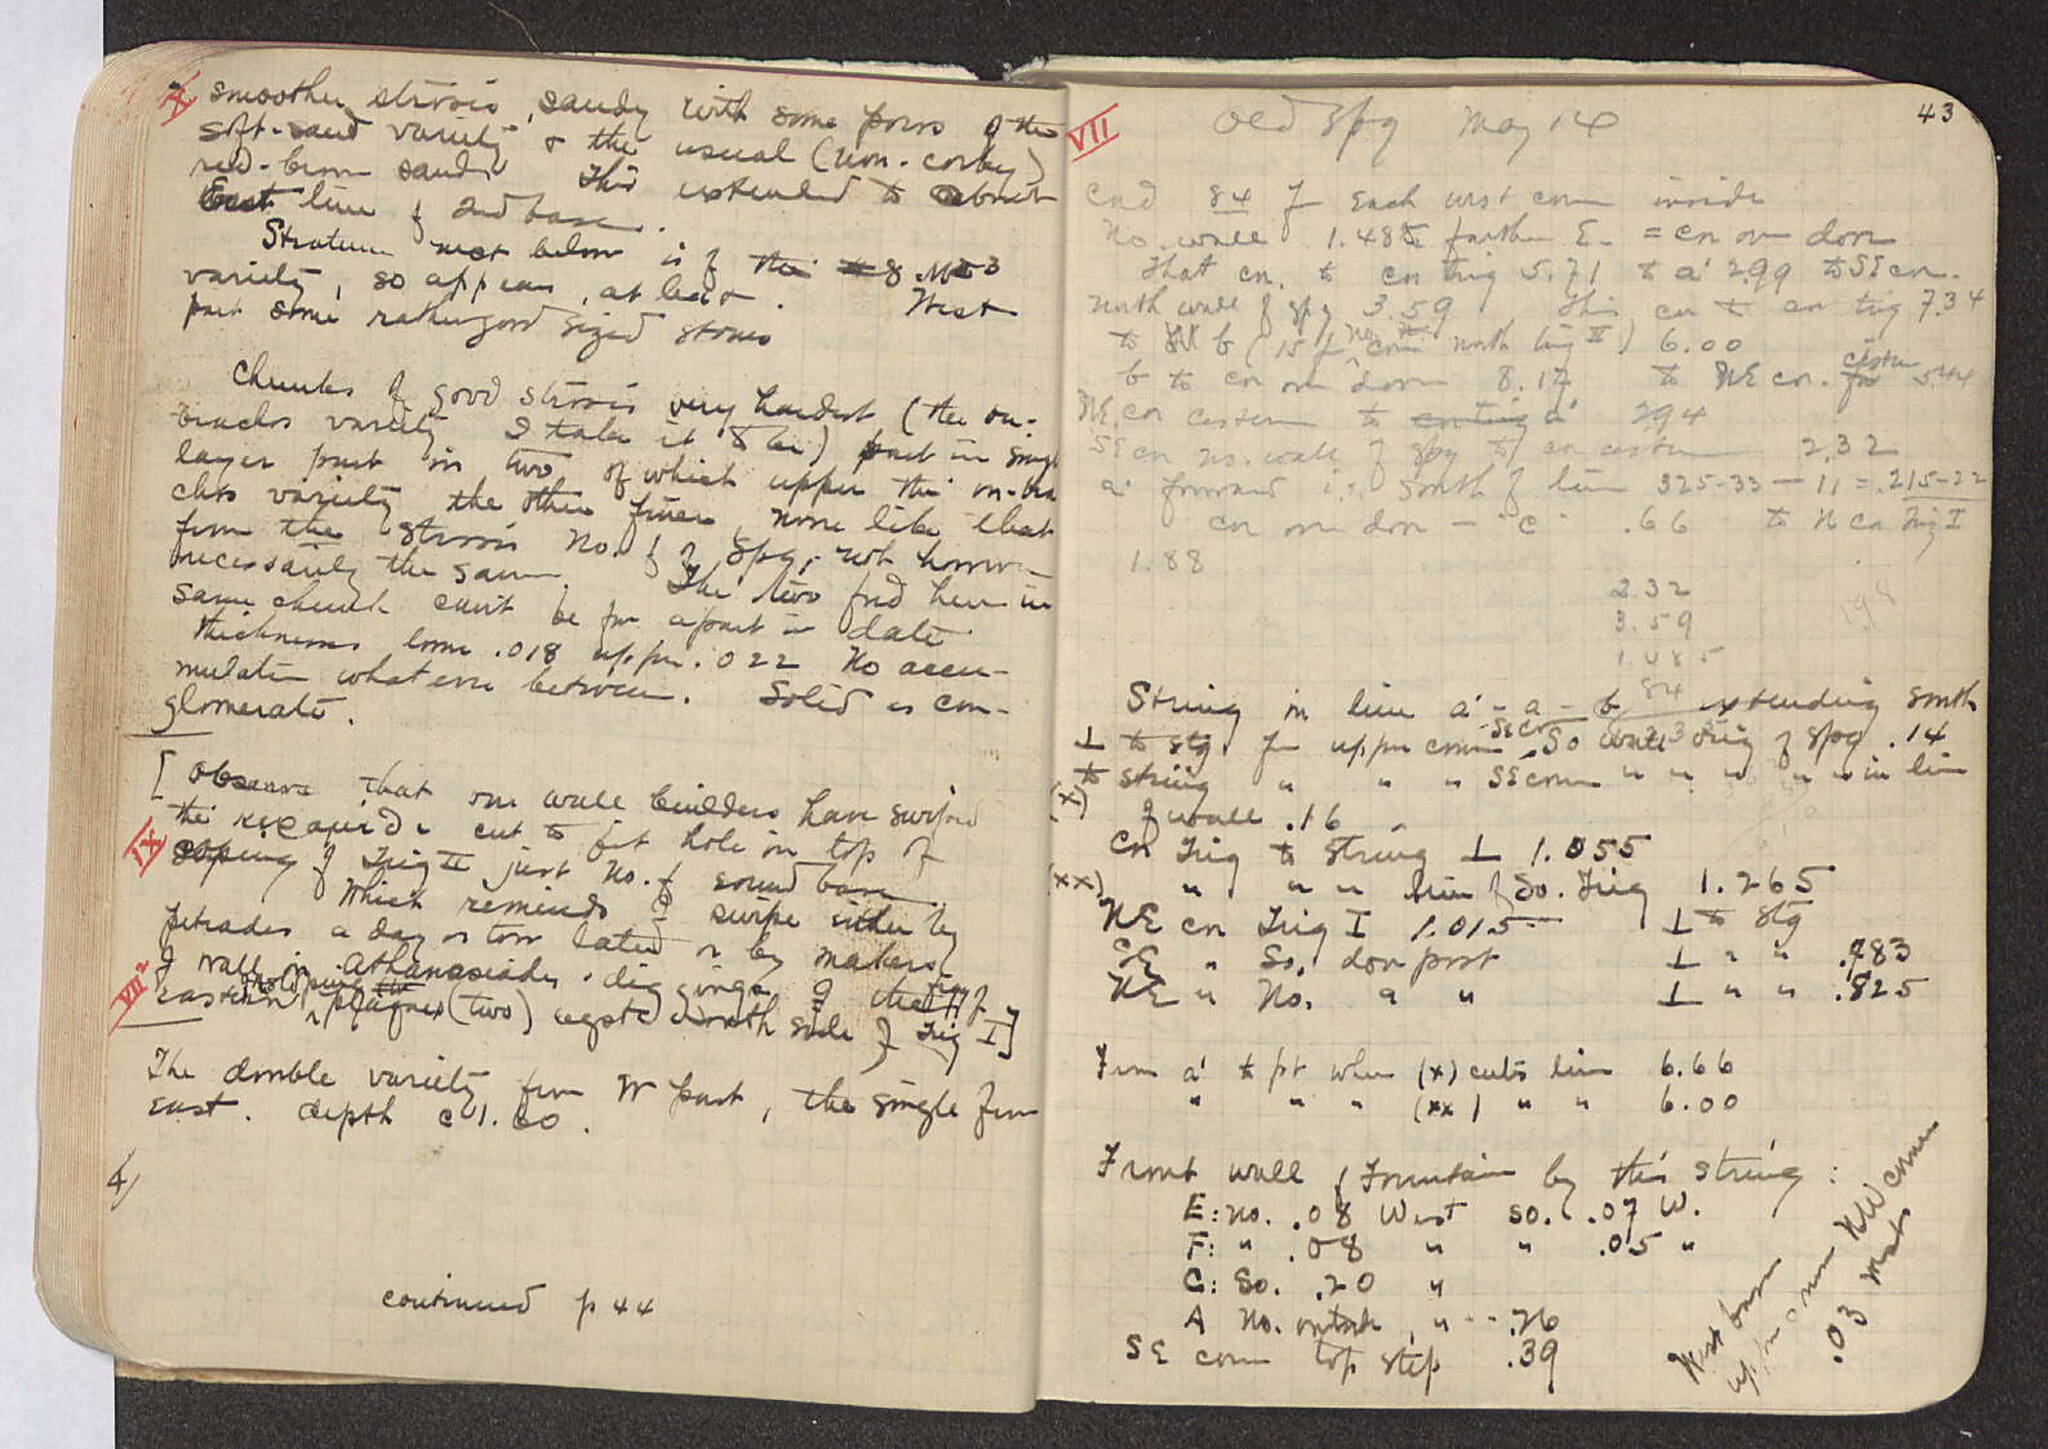 X smoother strosis, sandy with some pores of the
soft-sand variety & the usual (non-corky)
red-brown sand. This extended to about
East line of 2nd base.
Stratum next below is of the 8 No 3
variety, so appears, at least. West
part some rather good sized stones
Chunks of good strosis very hardest (the on-
variety I take it to be) part in single
layer part in two of which upper the on-
variety the other finer, more like that
from the strosis No. of Spg, not however
necessarily the same. The two fnd here in
same chunk can't be far apart in date
thickness lower .018 upper .022 No accu-
mulation whatever between. Solid as con-
glomerate.
[Observe that our wall builders have swiped
the cut to fit hole in top of
IX coping of Trig II just No. of round base.
Which reminds of swipe either by
a day or two later or by makers
of wall in Athanasiades' diggings of the
VIII 2 eastern (two) north side of Trig I]
The double variety from W part, the single from
east. depth c 1.60.
4)
continued p 44
43
VII Old Spg May 14
End 84 from west corner inside
No. wall 1.485 farther E. = cn on door
That cn. to cn trig 5.71 to a' 2.99 to SE cn.
north wall of spg 3.59 This cn to cn trig 7.34
to b (15 from corner north trig II) 6.00
b to cn on door 8.17 to NE cn. cistern 5.44
NE cn cistern to a' 2.94
SE cn no. wall of spg to cn cistern 2.32
a' forward i.e. south of line 325-33 — 11 = .215-22
cn on door — "C" .66 to N cn Trig I
1.88
2.32
3.59
1.485
84
198
String in line a' - a - b extending south
⊥ to stg. from upper corner SE cor So wall Trig of spg .14
to string " " " SE corner " " " " " in line
(X) of wall .16
Cn Trig to string ⊥ 1.055
(XX) " " " line of So. Trig 1.265
NE cn Trig I 1.015 ⊥ to stg
SE " So. door post ⊥ " " .783
NE " No. " " ⊥ " " .825
From a' to pt where (x) cuts line 6.66
" " " (xx) " " 6.00
Front wall of Fountain by this string:
E: no. .08 West so. .07 W.
F: " .08 " " .05 "
G: So. .20 "
A No. " .26
SE corner top step .39
West base
upper NW corner
.03 West